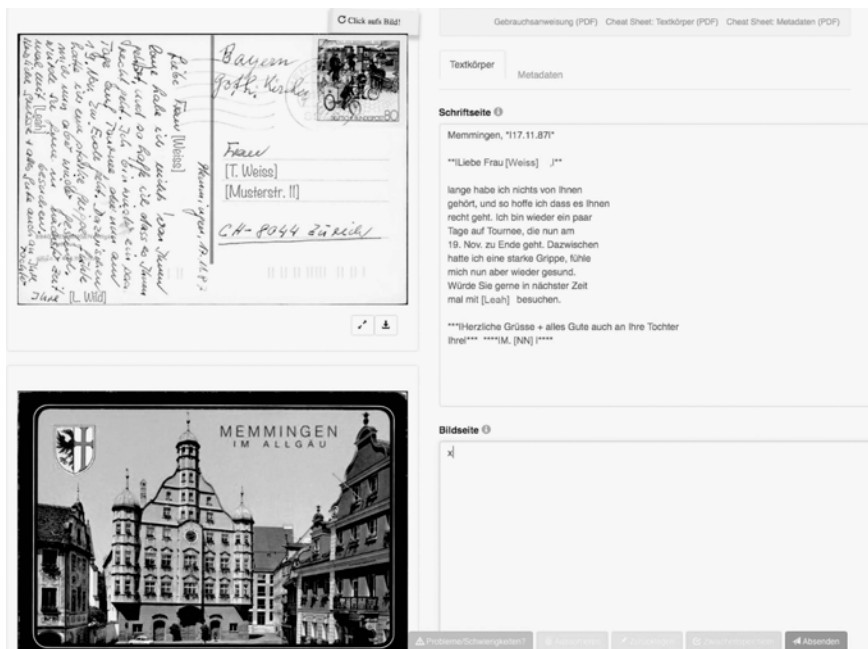 Click aufs Bild!
Gebrauchsanweisung (PDF) Cheat Sheet: Textkörper (PDF) Cheat Sheet: Metadaten (PDF)
Bayern
goth. Kirche
DEUTSCHE BUNDESPOST 80
Frau
[T. Weiss]
[Musterstr. 11]
CH-8044 Zürich
Memmingen, 17.11.87
Liebe Frau [Weiss]
lange habe ich nichts von Ihnen
gehört, und so hoffe ich dass es Ihnen
recht geht. Ich bin wieder ein paar
Tage auf Tournee, die nun am
19. Nov. zu Ende geht. Dazwischen
hatte ich eine starke Grippe, fühle
mich nun aber wieder gesund.
Würde Sie gerne in nächster Zeit
mal mit [Leah] besuchen.
Herzliche Grüsse + alles Gute auch an Ihre
Tochter
Ihre [L. Wild]
MEMMINGEN
IM ALLGÄU
Textkörper
Metadaten
Schriftseite
Memmingen, *|17.11.87|*
**|Liebe Frau [Weiss] ,|**
lange habe ich nichts von Ihnen
gehört, und so hoffe ich dass es Ihnen
recht geht. Ich bin wieder ein paar
Tage auf Tournee, die nun am
19. Nov. zu Ende geht. Dazwischen
hatte ich eine starke Grippe, fühle
mich nun aber wieder gesund.
Würde Sie gerne in nächster Zeit
mal mit [Leah] besuchen.
***|Herzliche Grüsse + alles Gute auch an Ihre Tochter
Ihre|*** ****|M. [NN] |****
Bildseite
x
Probleme/Schwierigkeiten?
Absenden